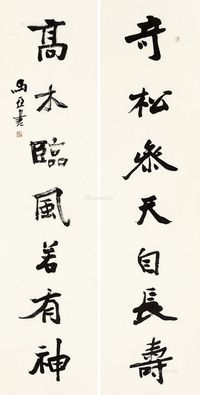 奇松參天自長壽
高木臨風若有神